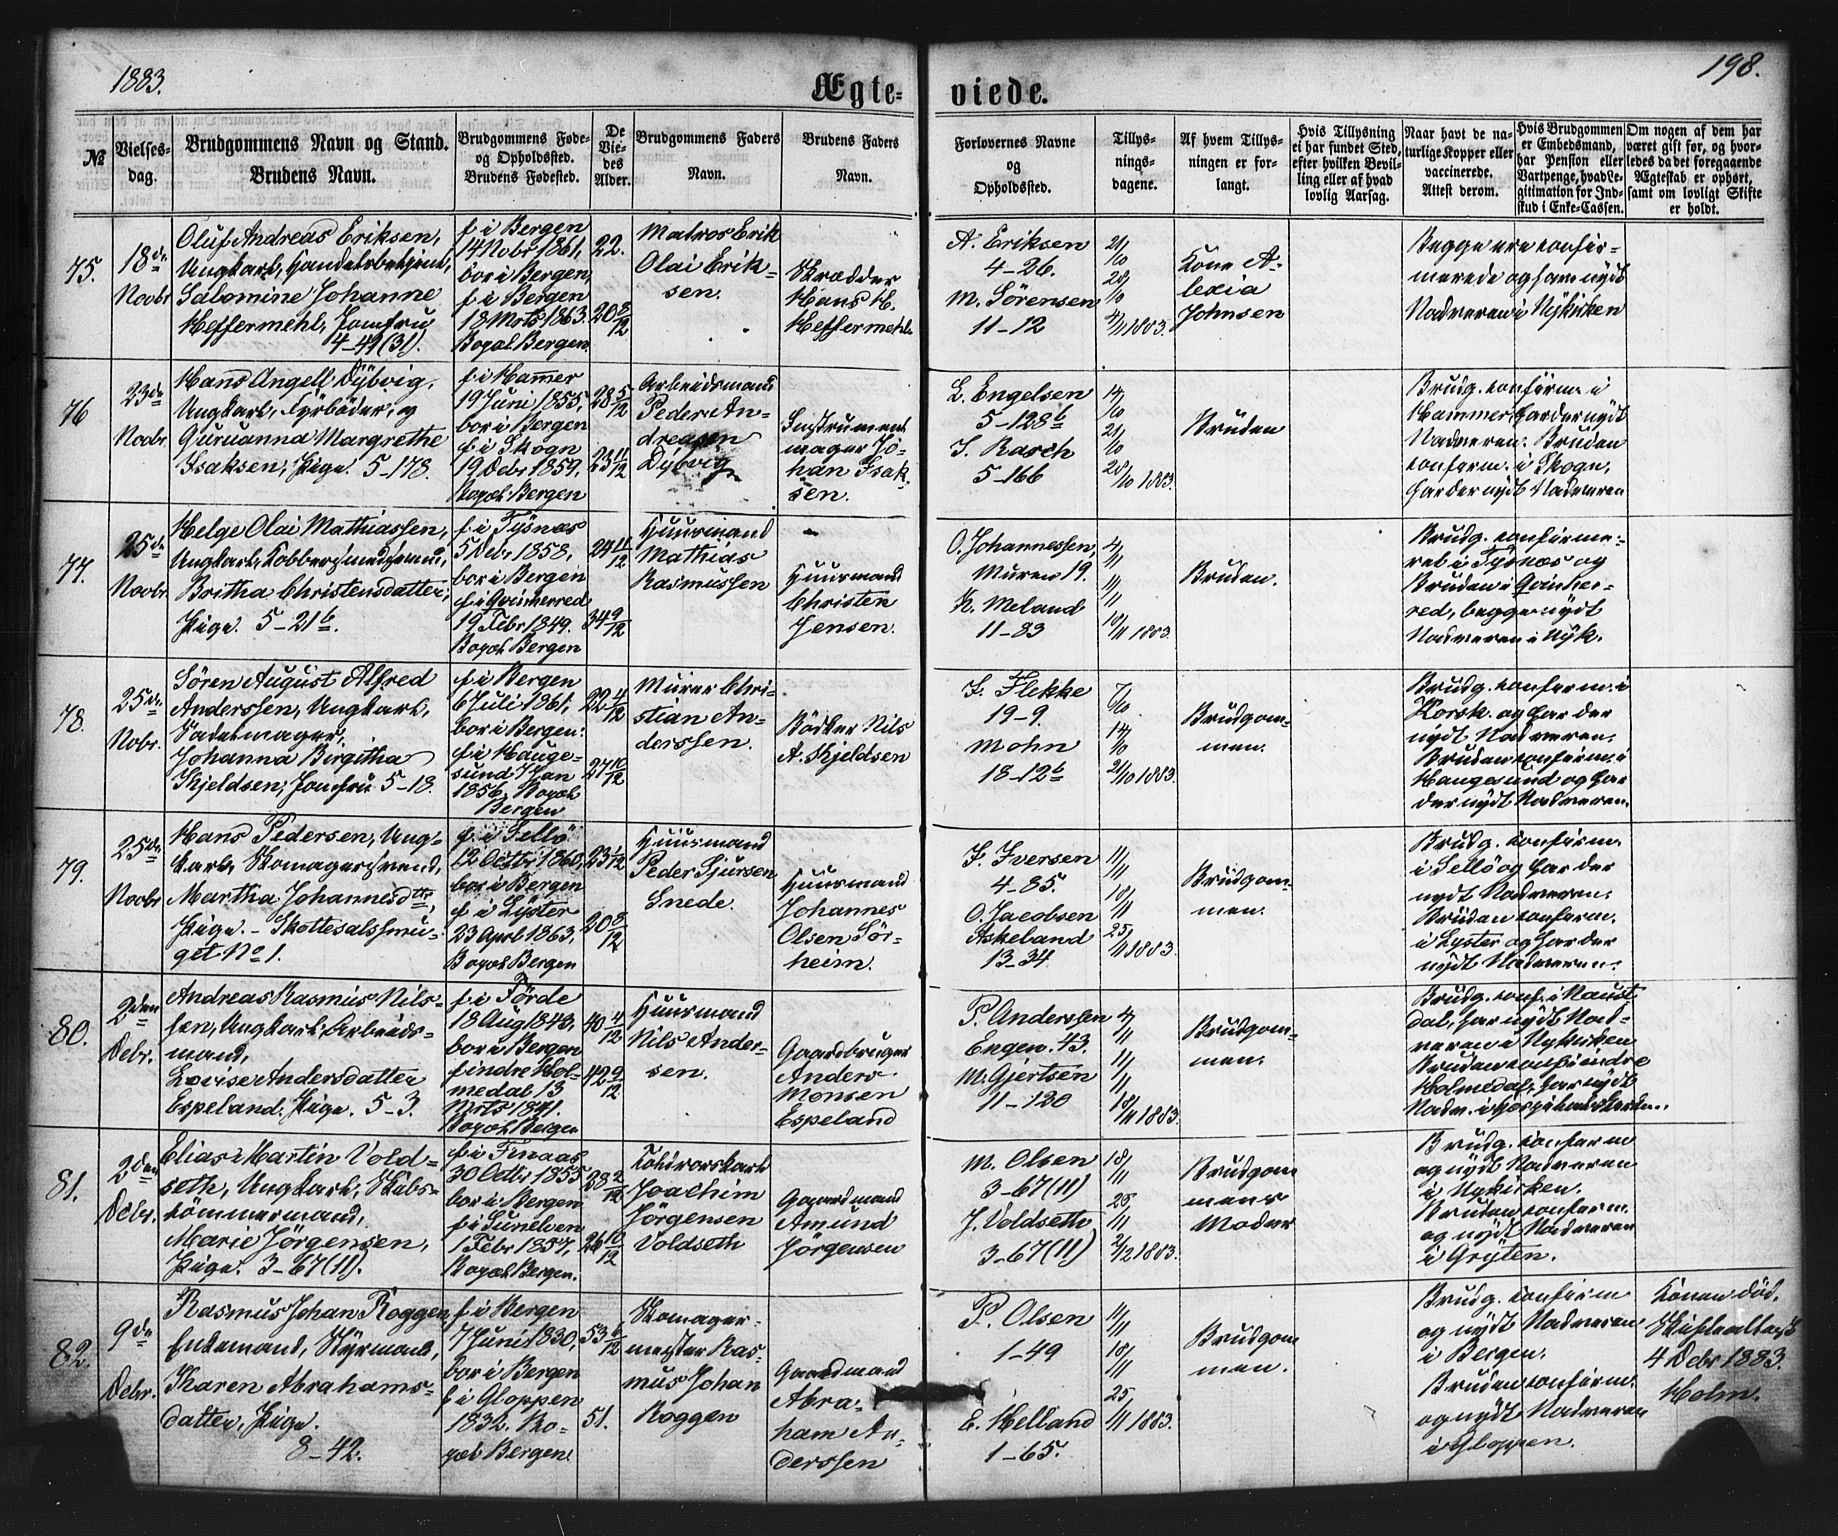 1883.
198.
Ægte-
viede.
№
Vielses-
dag.
Brudgommens Navn og Stand.
Brudens Navn.
Brudgommens Føde-
og Opholdssted.
Brudens Fødested.
De
Vie-
des
Alder.
Brudgommens Faders
Navn.
Brudens Faders
Navn.
Forlovernes Navne
og
Opholdssted.
Tillys-
nings-
dagene.
Af hvem Tillys-
ningen er for-
langt.
Hvis Tillysning
ei har fundet Sted,
efter hvilken Bevil-
ling eller af hvad
lovlig Aarsag.
Naar havt de na-
turlige Kopper eller
vaccinerede.
Attest derom.
Hvis Brudgommen
er Embedsmand,
har Pension eller
Vartpenge, hvad Le-
gitimation for Ind-
skud i Enke-Cassen.
Om nogen af dem har
været gift før, og hvor-
ledes da det foregaaende
Ægteskab er ophørt,
samt om lovligt Skifte
er holdt.
75.
18de
Novbr
Oluf Andreas Eriksen,
Ungkarl, Handelsbetjent,
Salomine Johanne
Heffermehl, Jomfru
4-49 (31).
f i Bergen
14 Nobr 1861,
bor i Bergen,
f i Bergen
18 Mrts 1863.
Bopæl Bergen.
22.
20 8/12
Matros Erik
Olai Erik-
sen.
Skrædder
Hans H.
Heffermehl.
A. Eriksen
4-26.
M. Sörensen
11-12
21/10
28/10
4/11 1883.
Kone A-
lexia
Johnsen
Begge ere confir-
merede og have nydt
Nadveren i Nykirken
76
23de
Novbr.
Hans Angell Dybvig,
Ungkarl, Fyrböder, og
Guruanna Margrethe
Isaksen, Pige. 5-178.
f i Hammer
19 Juni 1855,
bor i Bergen
f i Skogn
19 Debr 1859,
Bopæl Bergen
28 5/12
23 11/12
Arbeidsmand
Peder An-
dreasen
Dybvig
Instrument
mager Jo-
han Isak-
sen.
L. Engelsen
5-128b
J. Rasch
5-166
14/10
21/10
28/10 1883.
Bruden
Brudg. confirm. i
Hammer, har der nydt
Nadveren. Bruden
confirm. i Skogn,
har der nydt Nadveren
77.
25de
Novbr.
Helge Olai Mathiassen,
Ungkarl, Kobbersmedsvend,
Britha Christensdatter,
Pige. 5-21b.
f i Tysnæs
5 Debr 1858,
bor i Bergen
f i Qvinherred
19 Febr 1849.
Bopæl Bergen
24 11/12
34 9/12
Huusmand
Mathias
Rasmussen
Huusmand
Christen
Jensen.
O. Johannessen,
Muren 19.
K. Meland
11-83
4/11
11/11
18/11 1883.
Bruden.
Brudg. confirme-
ret i Tysnæs og
Bruden i Qvinher-
red, begge nydt
Nadveren i Nyk.
78.
25de
Nobr.
Sören August Alfred
Anderssen, Ungkarl,
Sadelmager,
Johanna Birgitha
Kjeldsen, Jomfru 5-18.
f i Bergen
6 Juli 1861,
bor i Bergen.
f i Hauge-
sund 7 Jan
1856. Bopæl
Bergen
22 4/12
27 10/12
Murer Chri-
stian An-
derssen.
Bödker Nils
A. Kjeldsen
J. Flekke
19-9.
Mohn
18-12b
7/10
14/10
21/10 1883.
Brudgom-
men.
Brudg. confirm. i
Korsk. og har der
nydt Nadveren.
Bruden confirm. i
Haugesund og har
der nydt Nadveren.
79.
25de
Novbr
Hans Pedersen, Ung-
karl, Skomagersvend,
Martha Johannesdtr,
Pige. - Skottesalssmu-
get No 1.
f i Sellö
12 Octbr 1860,
bor i Bergen
f i Lyster
23 Aprl 1863,
Bopæl Bergen
23 1/12
20 8/12
Huusmand
Peder Sjursen
Snede.
Huusmand
Johannes
Olsen Sör-
heim.
J. Iversen
4-85.
O. Jacobsen
Askeland
13-34
11/11
18/11
25/11 1883.
Brudgom-
men.
Brudg. confirm.
i Sellö og har der
nydt Nadveren.
Bruden confirm.
i Lyster og har der
nydt Nadveren.
80.
2den
Debr.
Andreas Rasmus Nils-
sen, Ungkarl, Arbeids-
mand,
Lovise Andersdatter
Espeland, Pige. 5-3.
f i Förde
18 Aug 1843,
bor i Bergen
f indre Hol-
medal 13
Mrts 1841.
Bopæl Bergen
40 4/12
42 9/12
Huusmand
Nils Ander-
sen.
Gaardbruger
Anders
Monsen
Espeland
P. Anderssen
Engen. 43.
M. Gjertsen
11-120
4/11
11/11
18/11 1883.
Brudgom-
men.
Brudg. conf. i Naust-
dal, har nydt Nad-
veren i Nykirken
Bruden conf i indre
Holmedal, har nydt
Nadv. i Hospitalskirken.
81.
2den
Debr.
Elias Martin Vold-
seth, Ungkarl, Skibs-
tömmermand,
Marie Jörgensen,
Pige. 3-67 (11).
f i Tinaas
30 Octbr 1855
bor i Bergen
f i Sunelven
1 Febr 1857,
Bopæl Bergen.
28 2/12
26 10/12
Joachim
Jörgensen
Voldseth
Gaardmand
Amund
Jörgensen
M. Olsen
3-67 (11)
J. Voldseth
3-67 (11)
18/11
25/11
2/12 1883.
Brudgom
mens
Moder
Brudg. confirm
og nydt Nadveren
i Nykirken.
Bruden confirm.
og nydt Nadveren
i Gryten.
82.
9de
Debr.
Rasmus Johan Roggen,
Enkemand, Styrmand,
Karen Abrahams-
datter, Pige.
8-42.
f i Bergen
7 Juni 1830,
bor i Bergen
f i Gloppen
1832. Bo-
pæl Bergen.
53 6/12
51.
Skomager-
mester Ras-
mus Johan
Roggen
Gaardmand
Abra-
ham An-
derssen
P. Olsen
1-49
E. Helland
1-65.
11/11
18/11
25/11 1883.
Brudgom
men.
Brudg. confirm
og nydt Nadveren
i Bergen.
Bruden confirm.
og nydt Nadveren
i Gloppen.
Konen död.
Skifteattest
4 Debr 1883.
Holm.